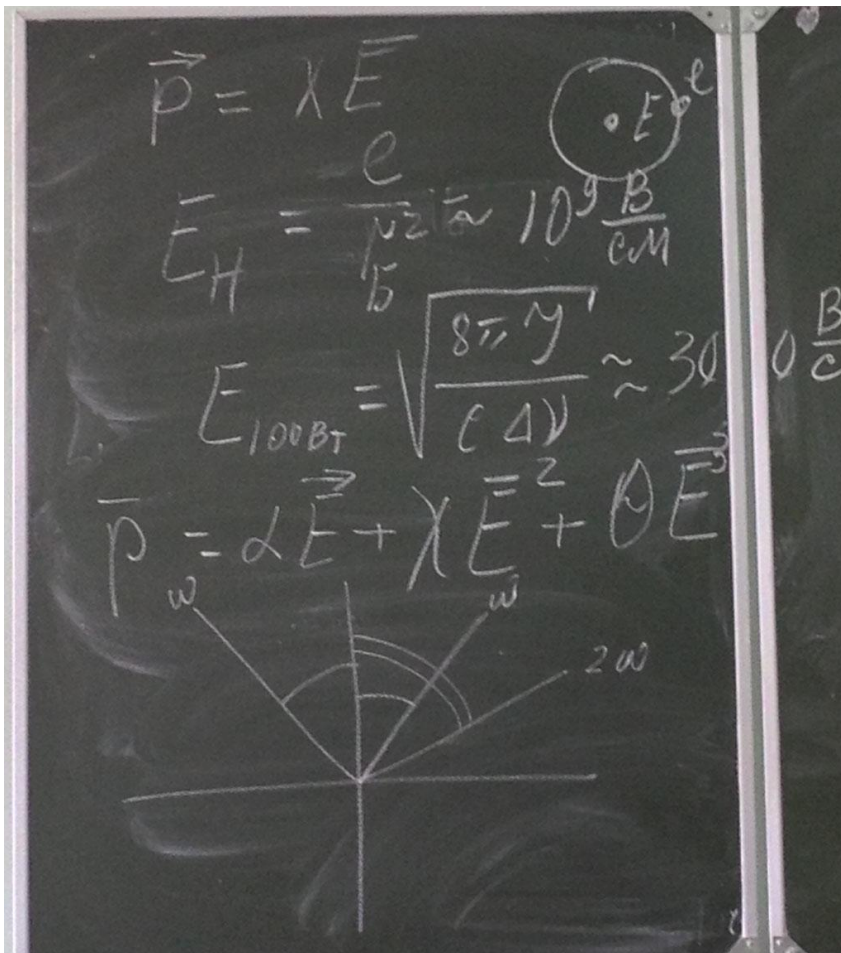 p⃗ = χE̅
e
E
E̅_H = e/r_Б² ≈ 10⁹ В/см
E_100Вт = √(8πJ/(cΔν)) ≈ 300 В/с
p̅ = αE⃗ + χE̅² + θE̅³
ω ω
2ω